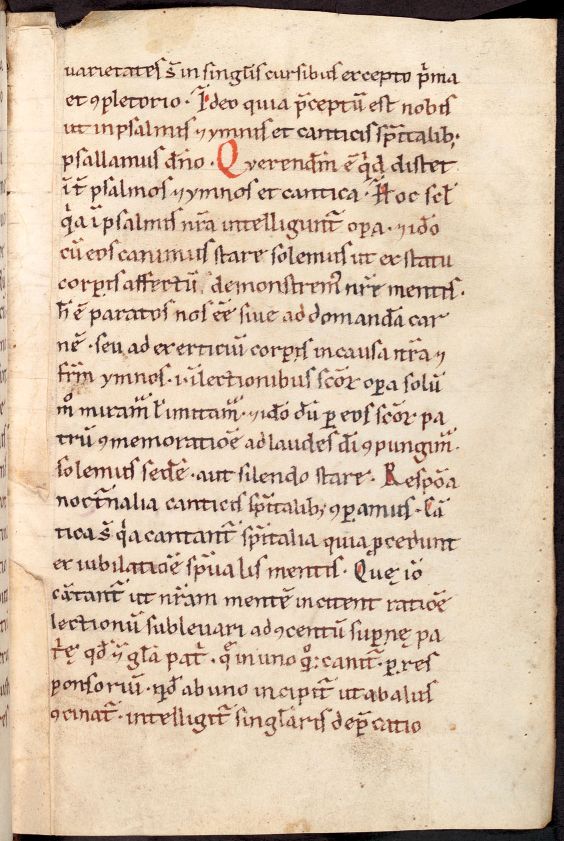 varietates s̄ in singul̄s cursibus excepto p̄ma
et ꝯpletorio. Ideo quia p̄ceptū est nobis
ut in psalmis ⁊ ymnis et canticis sp̄italib;
psallamus dn̄o. Querendū ē qͥd distet
int̄ psalmos ⁊ ymnos et cantica. Hoc scł
qͥa ī psalmis nr̄a intelligunt̄ oꝑa. ⁊ idō
cū eos canimus stare solemus ut ex statu
corꝑis affectū demonstremꝰ nr̄e mentis.
h̄ ē paratos nos eē sive ad domandā car
nē. seu ad exerciciū corꝑis in causa nr̄a ⁊
fr̄m ymnos. lectionibus sc̄oꝝ oꝑa solū
mͦ miram̄ ł imitam̄. ⁊ idō dū ꝑ eos sc̄oꝝ pa
trū ꝯmemoratiōē ad laudes dī ꝯpungim̄.
solemus sedē. aut silendo stare. Respōa
noct̄nalia canticis sp̄italib; ꝯparamus. Cā
tica s̄ qͥa cantant̄ sp̄italia quia ꝓcedunt
ex iubilatiōē sp̄ualis mentis. Quę iō
cātant̄ ut nr̄am mentē incitent ratiōē
lectionū sublevari ad ꝯcentū supn̄ę pa
t̄ę qd̄ ⁊ gl̄a pat̄. in uno cant̄. ꝑ res
ponsoriū. qd̄ ab uno incipit̄ ut ab aliis
ꝯcinat̄. intelligit̄ singl̄aris dep̄catio